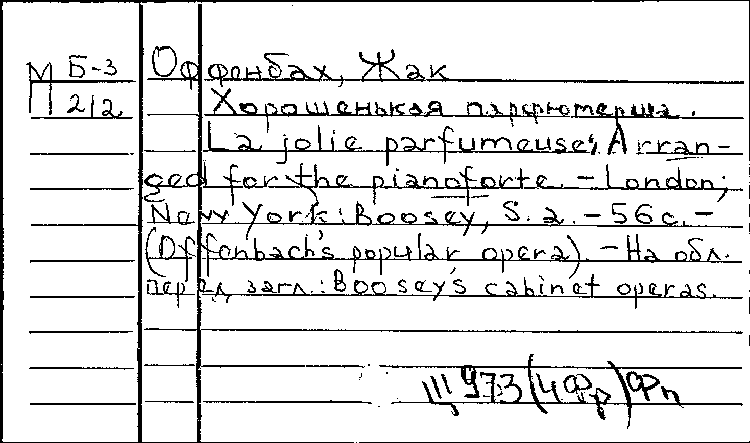 М Б-3 Оффенбах, Жак
П 212 Хорошенькая парфюмерша.
La jolie parfumeuse; Arran-
ged for the pianoforte. - London;
New York: Boosey, S. a. - 56 с. -
(Offenbach's popular opera). - На обл.
перед загл.: Boosey's cabinet operas.
Щ 973(4Фр)Фп